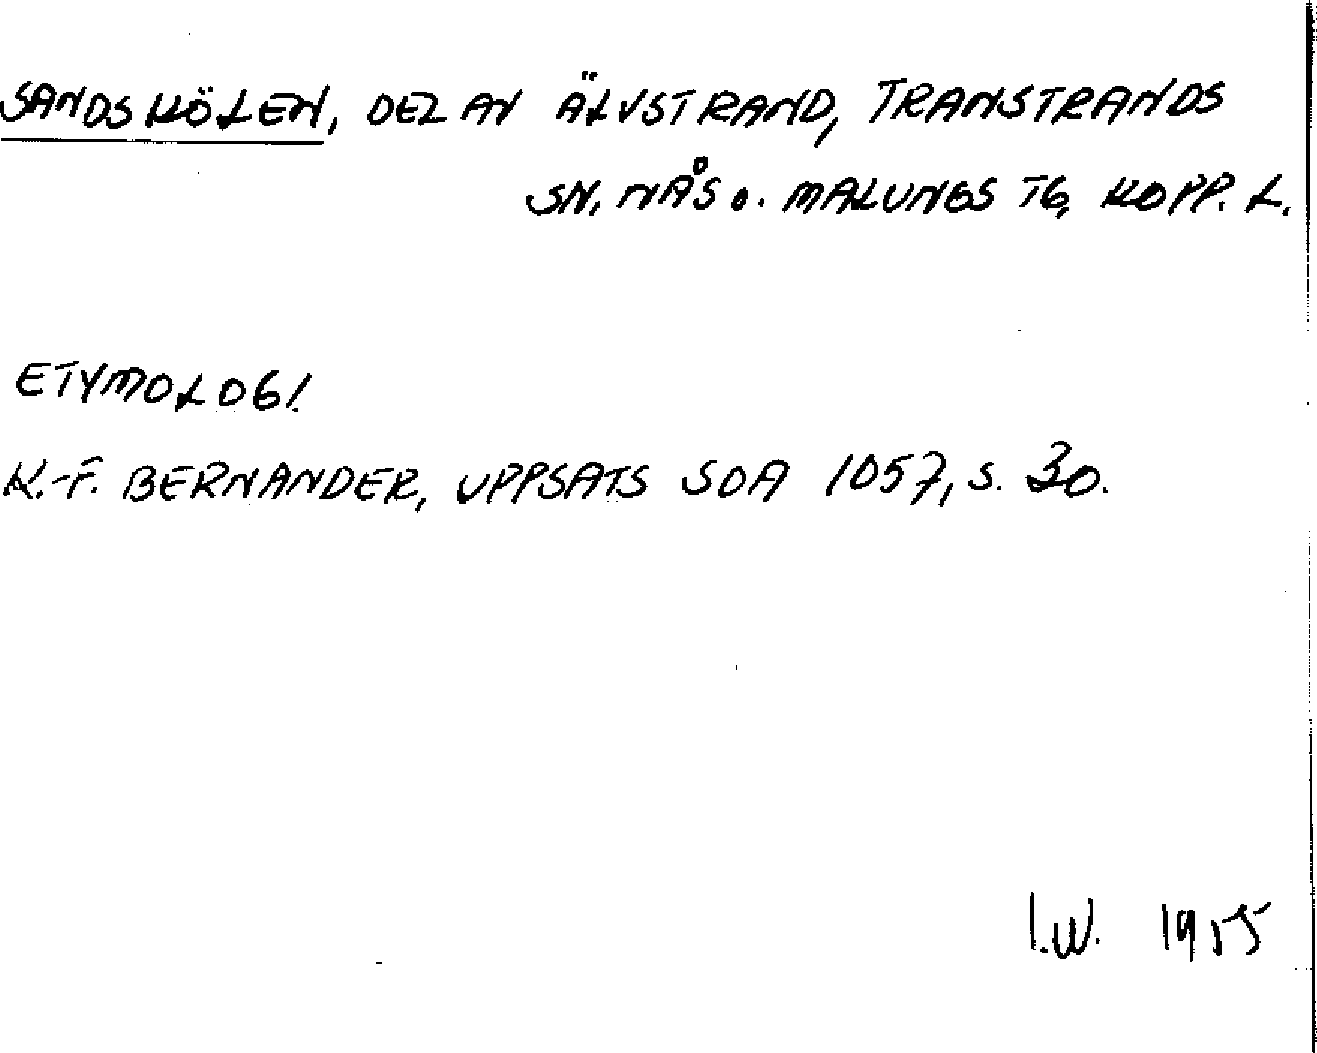 SANDSKÖLEN, DEL AV ÄLVSTRAND, TRANSTRANDS
SN, NÅS O. MALUNGS TG, KOPP. L.
ETYMOLOGI.
K.-F. BERNANDER, UPPSATS SOA 1057, S. 30.
I.W. 1955